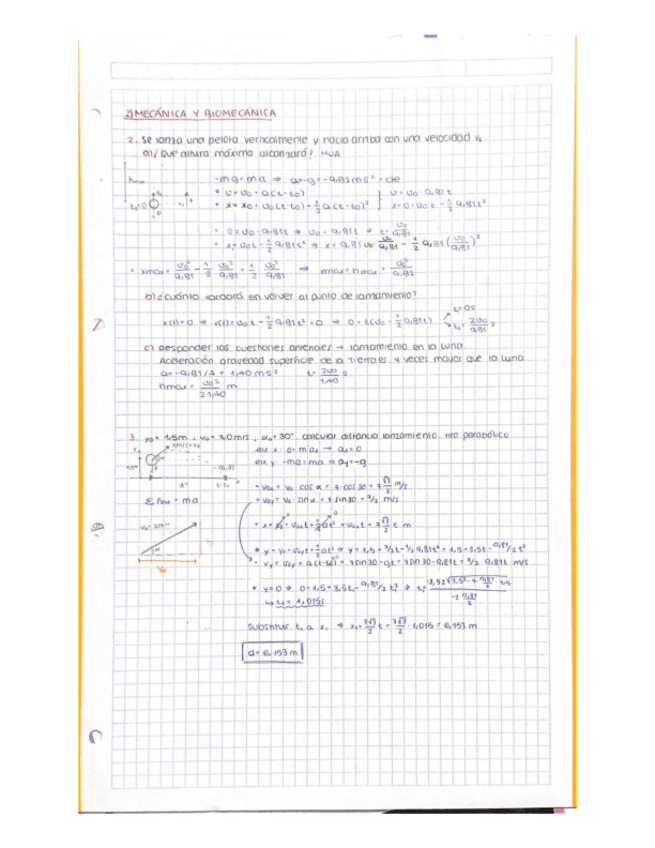 2) MECÁNICA Y BIOMECÁNICA
2. Se lanza una pelota verticalmente y hacia arriba con una velocidad v₀
a) ¿Que altura máxima alcanzará? MUA
-mg = ma ⇒ a=-g = -9,81 ms²
• v = v₀ + a(t-t₀)
• x = x₀ + v₀(t-t₀) + 1/2 a(t-t₀)²
v = v₀ - 9,81t
x = 0 + v₀t - 1/2 9,81t²
• 0 = v₀ - 9,81t ⇒ v₀ = 9,81t ⇒ t = v₀/9,81
• x = v₀t - 1/2 9,81t² ⇒ x = 9,81 v₀/9,81 - 1/2 9,81 (v₀/9,81)²
• xmax = v₀²/9,81 - 1/2 v₀²/9,81 = 1/2 v₀²/9,81 ⇒ xmax = hmax = v₀²/9,81
b) ¿Cuánto tardará en volver al punto de lanzamiento?
x(t) = 0 ⇒ x(t) = v₀t - 1/2 9,81t² = 0 ⇒ 0 = t(v₀ - 1/2 9,81t)
t = 0s
t₁ = 2v₀/9,81 s
c) Responder las cuestiones anteriores → lanzamiento en la Luna
Aceleración gravedad superficie de la Tierra es 7 veces mayor que la Luna
a = -9,81/7 = 1,40 ms²
t = 2v₀/1,40 s
hmax = v₀²/2 1,40 m
3. y₀ = 1,5m ; v₀ = 7,0m/s ; α₀ = 30° calcular distancia lanzamiento tiro parabólico
eje x: 0 = maₓ → aₓ = 0
eje y: -mg = ma → ay = -g
• v₀ₓ = v₀ cos α = 7 · cos 30 = 7 √3/2 m/s
Σ Fext = ma
• v₀y = v₀ · sin α = 7 sin 30 = 7/2 m/s
• x = x₀ + v₀ₓt + 1/2 at² = v₀ₓt = 7 √3/2 t m
• y = y₀ + v₀yt + 1/2 at² ⇒ y = 1,5 + 7/2 t - 1/2 9,81t² = 1,5 + 3,5t - 9,81/2 t²
• vy = v₀y + a(t-t₀) = 7 sin 30 - gt = 7 sin 30 - 9,81t = 7/2 - 9,81t m/s
• y = 0 ⇒ 0 = 1,5 + 3,5t₁ - 9,81/2 t₁²
↳ t₁ = 1,015s
Substituir t₁ a x₁ ⇒ x₁ = 7√3/2 t = 7√3/2 · 1,015 = 6,153 m
d = 6,153 m